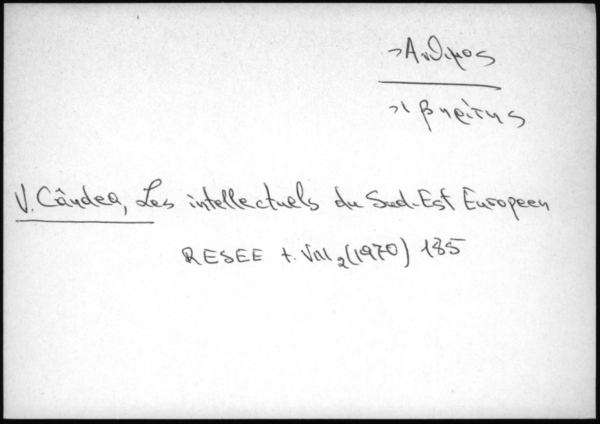 Ἄνθιμος
Ἰβηρίτης
V. Cândea, Les intellectuels du Sud-Est Europeen
RESEE t. VIII 2 (1970) 185